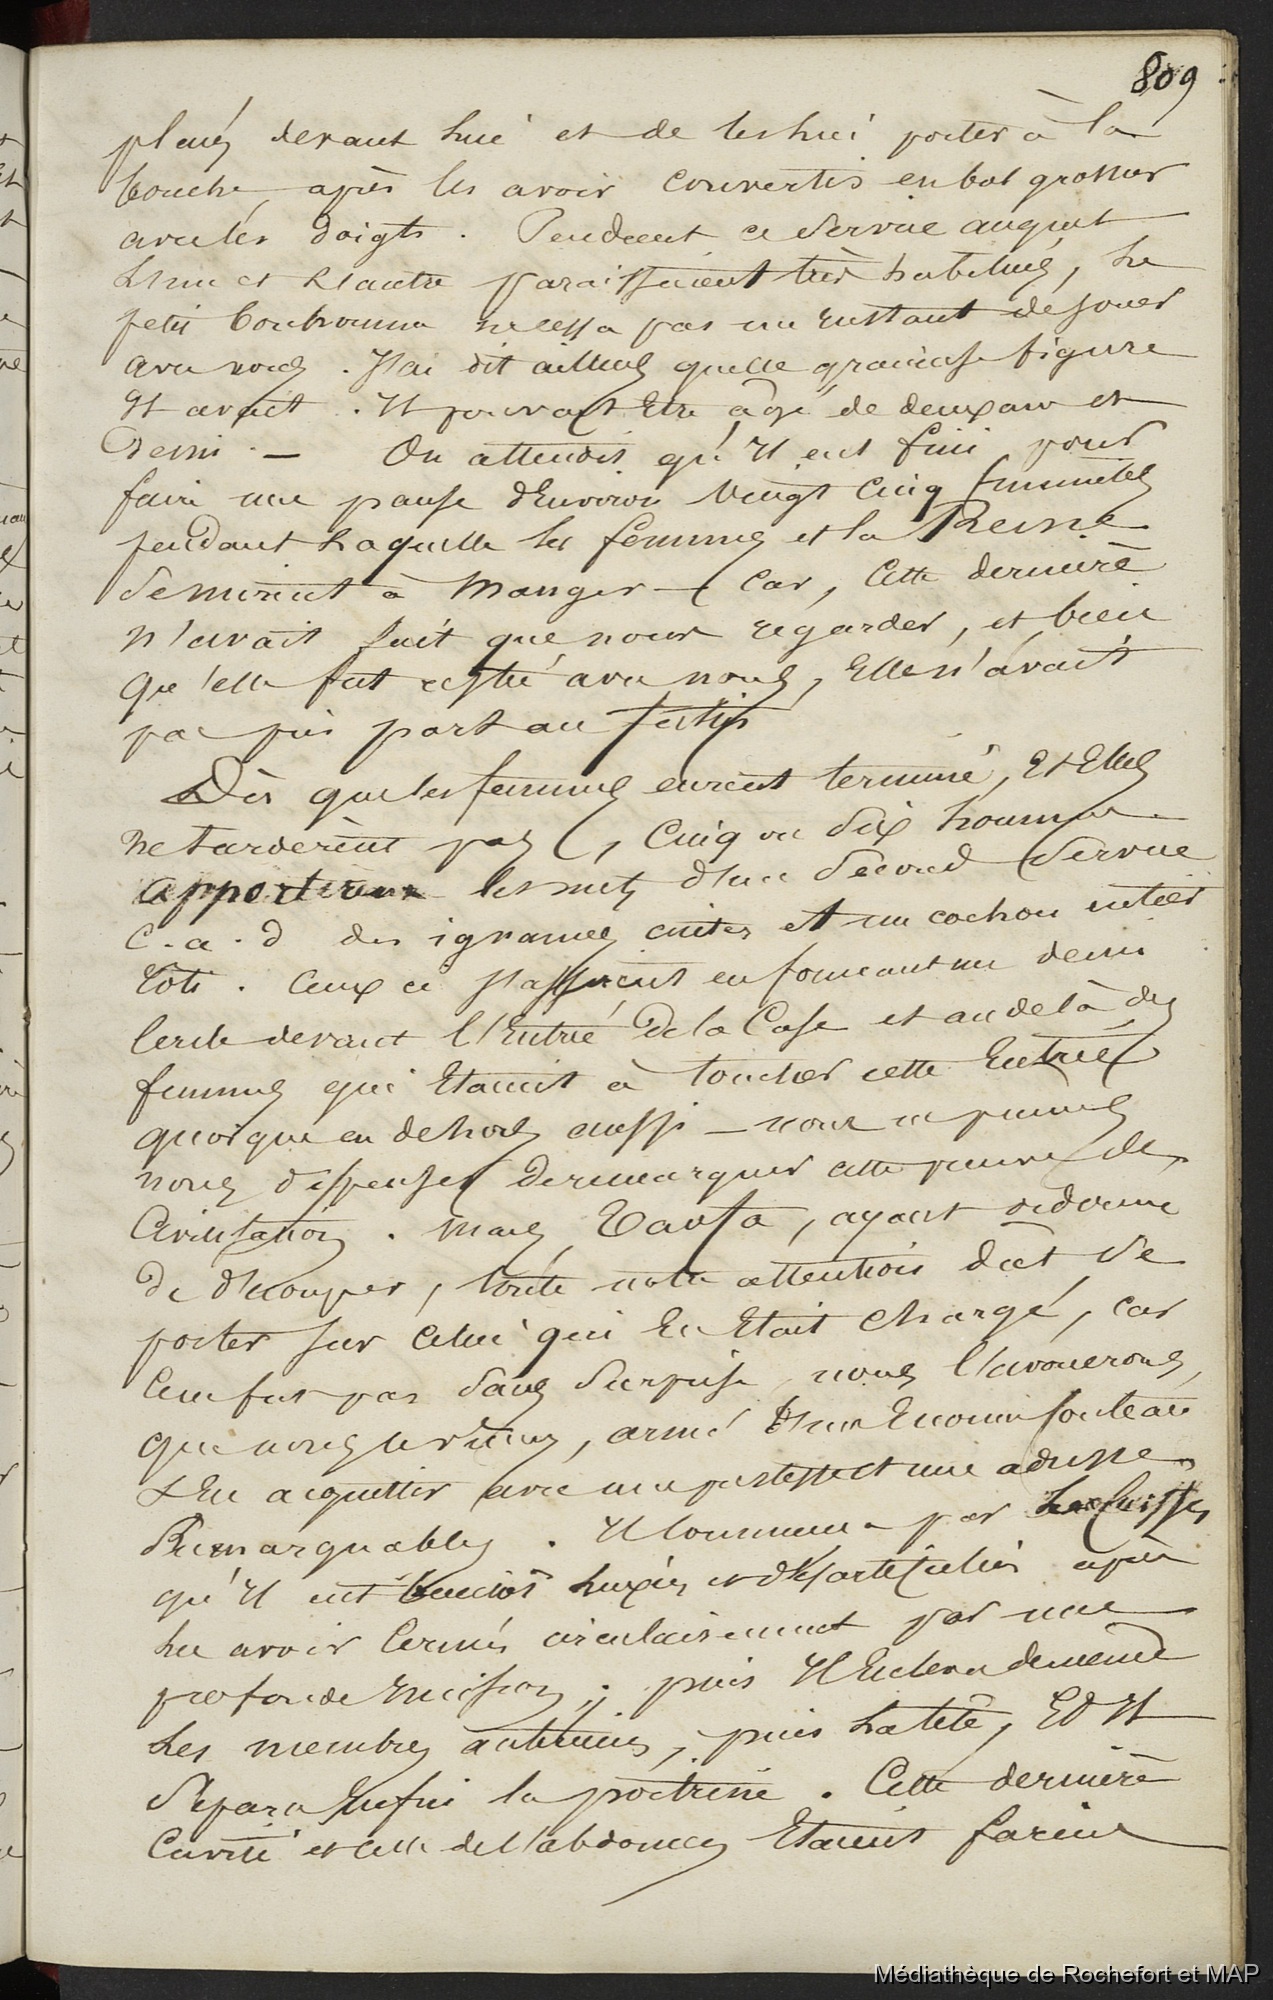 809
placés devant lui et de les lui porter à la
bouche, après les avoir convertis en bol grossier
avec les doigts. Pendant ce service auquel
L'un et L'autre paraissaient très habitués, Le
petit bonhomme ne cessa pas un instant de jouer
avec nous. J'ai dit ailleurs quelle gracieuse figure
Il avait. Il pouvait Etre agé de deux ans et
Demi. — On attendit qu'Il eut fini pour
faire une pause d'Environ Vingt Cinq minutes
pendant Laquelle les femmes et la Reine
se mirent à manger — Car, Cette dernière
n'avait fait que nous regarder, et bien
qu'elle fut restée avec nous, Elle n'avait
pas pris part au festin
Dès que les femmes eurent terminé, Et Elles
ne tardèrent pas, Cinq ou Six hommes
apportèrent les mets d'un Second Service
C.a.d des ignames cuites et un cochon entier
roti. Ceux ci s'assirent en formant un demi
Cercle devant l'Entrée de la Case et au delà des
femmes qui Etaient à toucher cette Entrée
quoique en dehors aussi — nous ne pumes
nous dispenser de remarquer cette preuve de
Civilisation. Mais, Taofa, ayant ordonné
de découper, toute notre attention dût se
porter sur Celui qui En Etait chargé, car
Ce ne fut pas sans Surprise, nous l'avouerons,
que nous le vimes, armé d'un Enorme couteau
s'En acquitter avec une justesse et une adresse
Remarquables. Il commença par les Cuisses
qu'Il eut bientot Luxées et désarticulées après
les avoir Cernés circulairement par une
profonde Incision; puis Il Enleva de même
Les membres antérieurs, puis La tête, Et Il
Sépara Enfin la poitrine. Cette dernière
Cavité et celle de l'abdomen Etaient farcies
Médiathèque de Rochefort et MAP